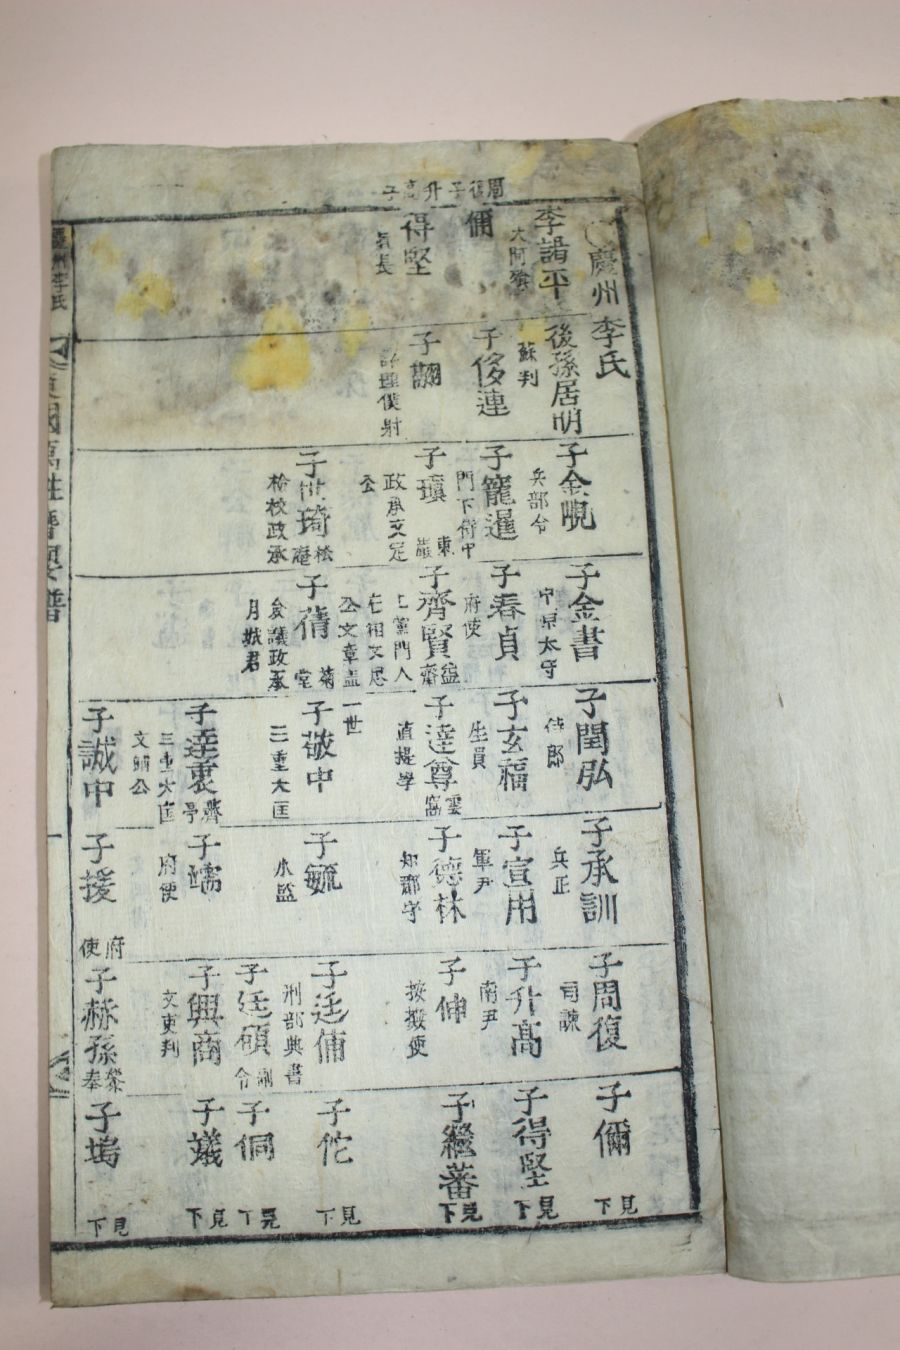 慶州李氏
李謁平
大阿飡
後孫居明
蘇判
子金現
兵部令
子金書
中原太守
子閏弘
侍郎
子承訓
兵正
子周復
司諫
子偭
見下
侈連
子寵暹
門下侍中
子春貞
府使
子玄福
生員
子宣用
軍尹
子升高
南尹
子得堅
見下
得堅
長
子翮
僕射
子瑱
東巖
政承文定
公
子齊賢
益齋
門人
公文章蓋
一世
子達尊
雲窩
直提學
子德林
知郡守
子伸
按撫使
子繼蕃
見下
子世琦
松巖
檢校政承
子蒨
菊堂
僉議政承
月城君
子敬中
三重大匡
子毓
小監
子廷俌
刑部典書
子佗
見下
子廷碩
令
子侗
見下
子達衷
霽亭
三重大匡
文靖公
子竱
府使
子興商
文吏判
子蟻
見下
子誠中
子援
府使
子赫孫
奉
子塢
見下
慶州李氏
東國萬姓譜